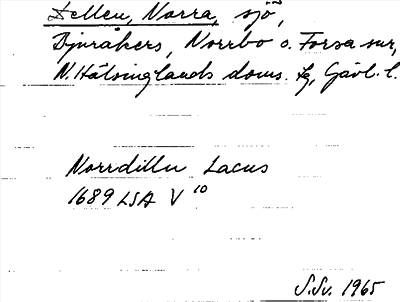 Dellen, Norra, sjö,
Bjuråkers, Norrbo o. Forsa snr,
N. Hälsinglands doms. lg, Gävl. l.
Norrdilln Lacus
1689 LSA V 10
S.Sv. 1965